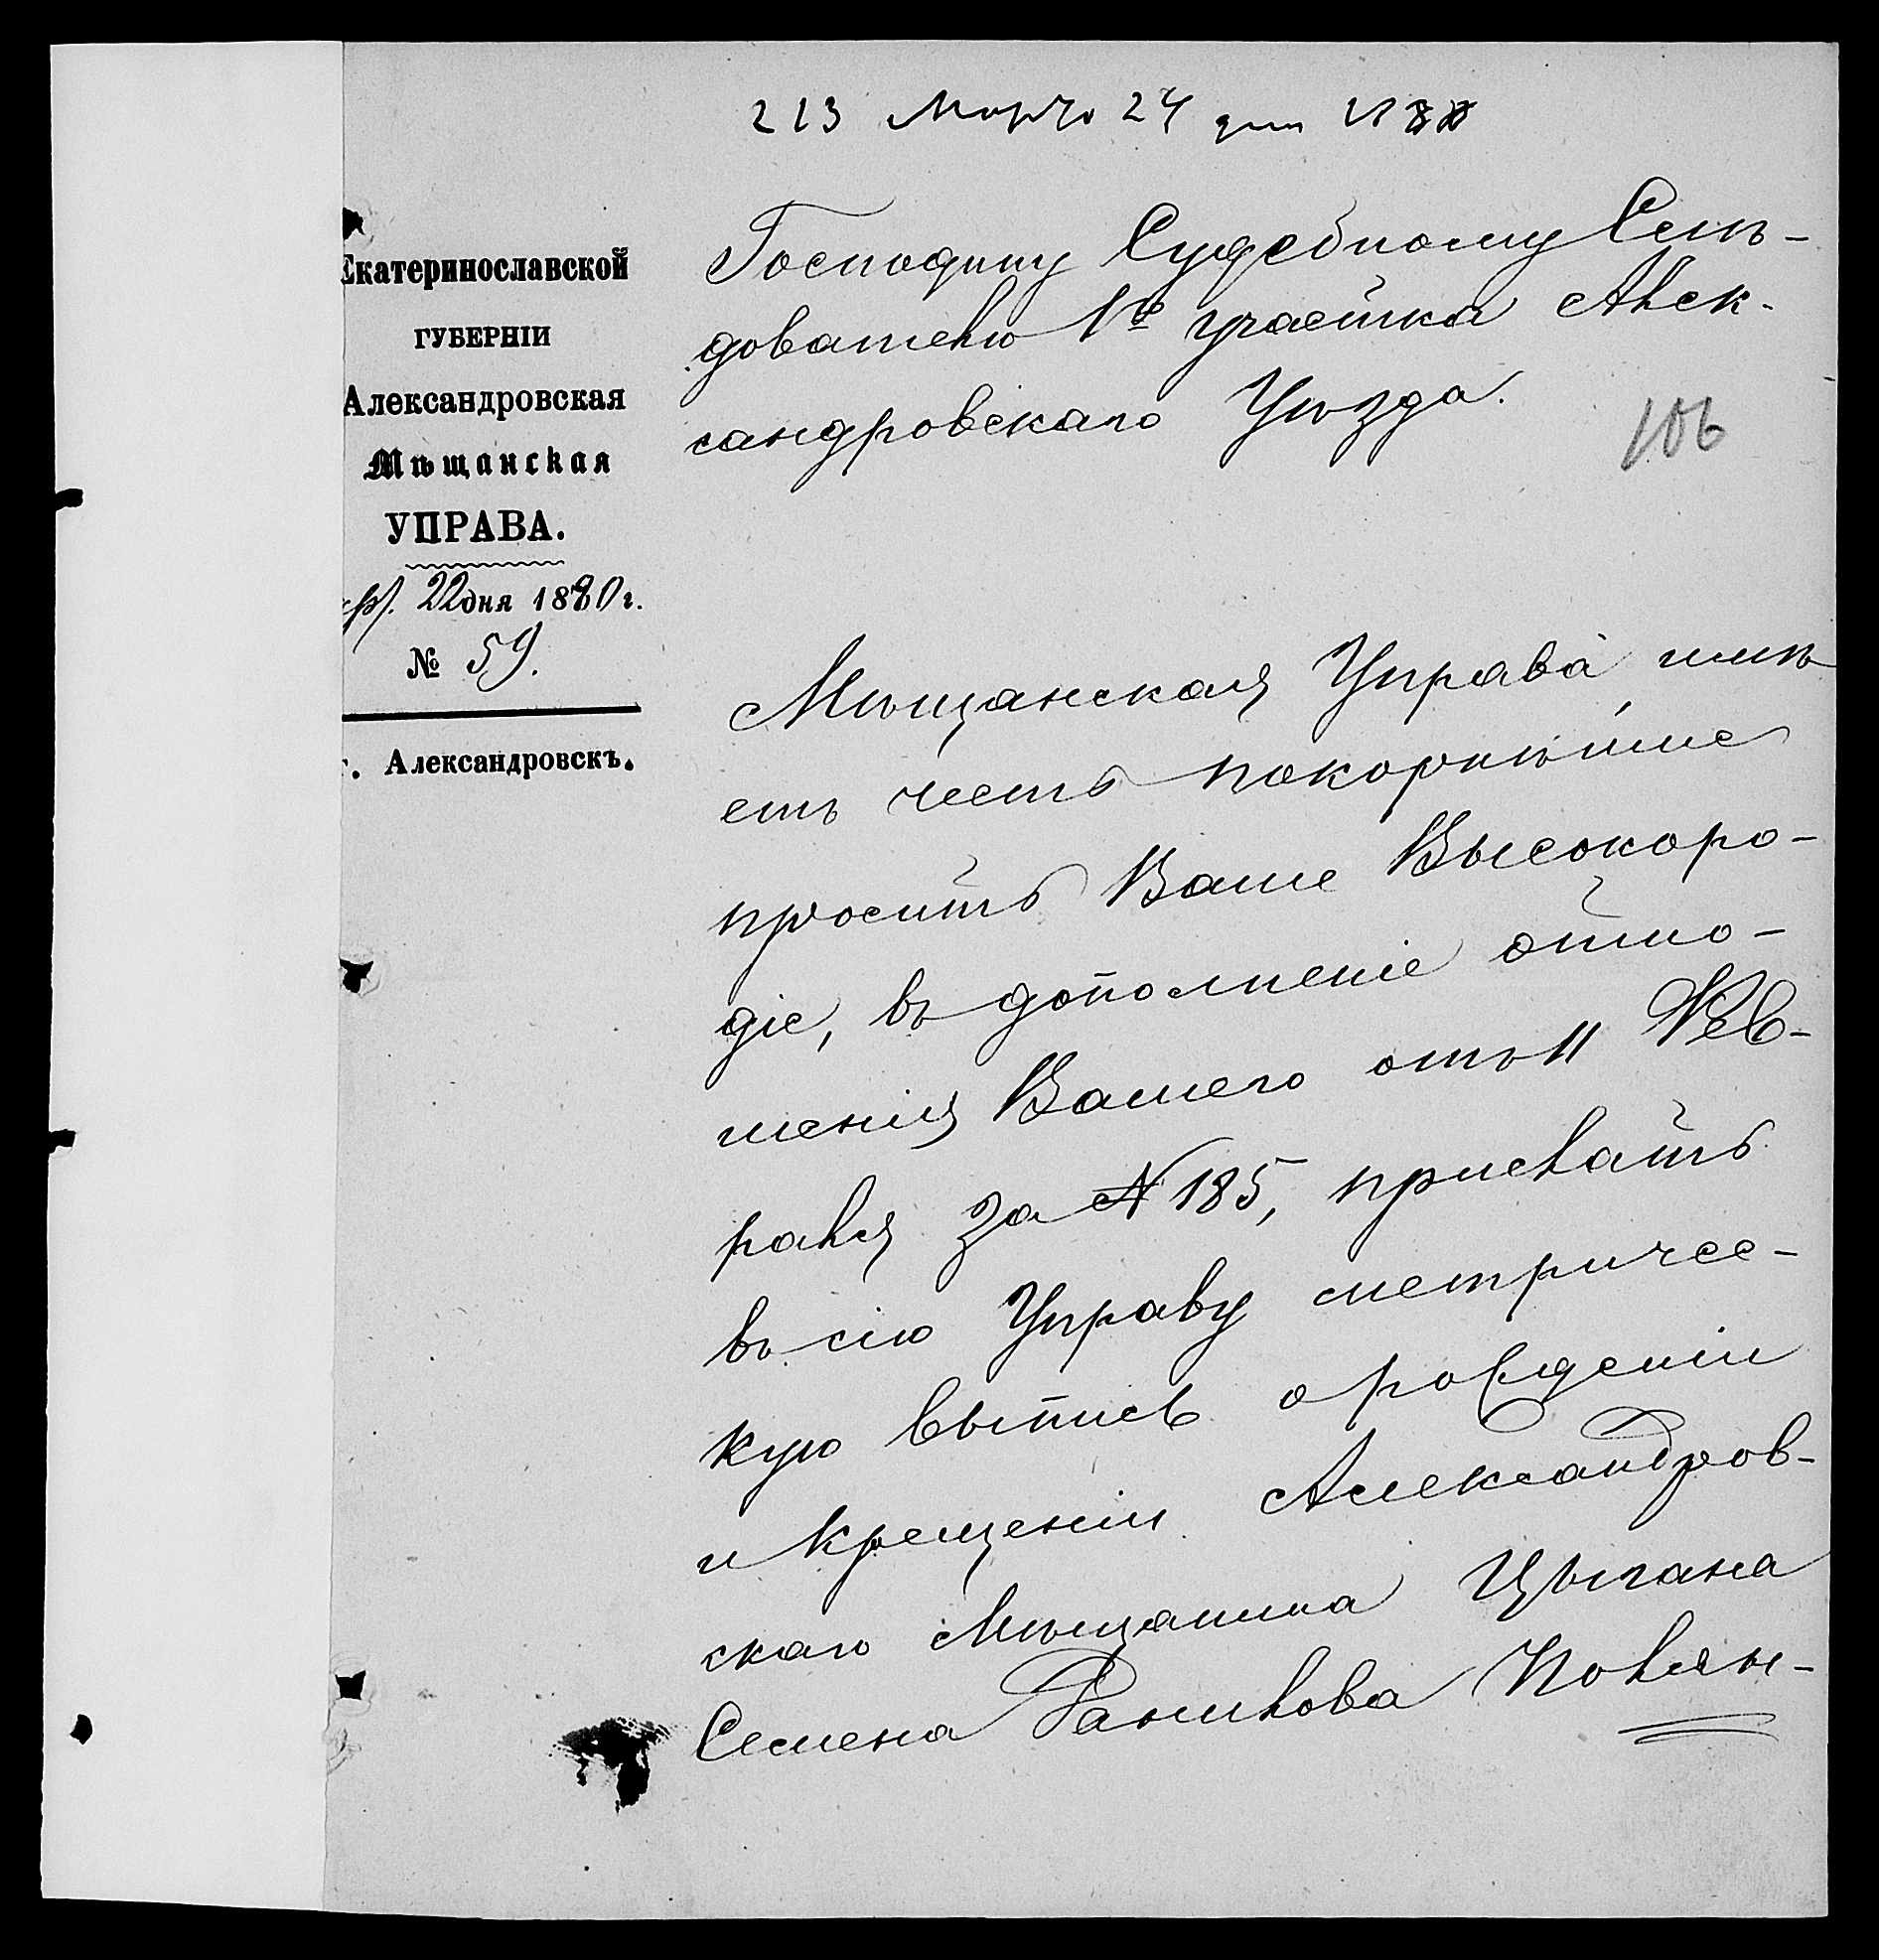 213 Марта 24 дня 1880
Екатеринославской
ГУБЕРНІИ
Александровская
Мѣщанская
УПРАВА.
22 дня 1880 г.
№ 59.
г. Александровскъ.
Господину Судебному Слѣ-
дователю 1го участка Алек-
сандровскаго Уѣзда.
106
Мѣщанская Управа, имѣ
етъ честь покорнѣйше
просить Ваше Высокоро-
діе, въ дополненіе отно-
шенія Вашего отъ 11 Фев-
раля за № 185, прислать
въ сію Управу метричес-
кую выпись о рожденіи
и крещеніи Александров-
скаго Мѣщанина Цыгана
Семена Данилова Полян-